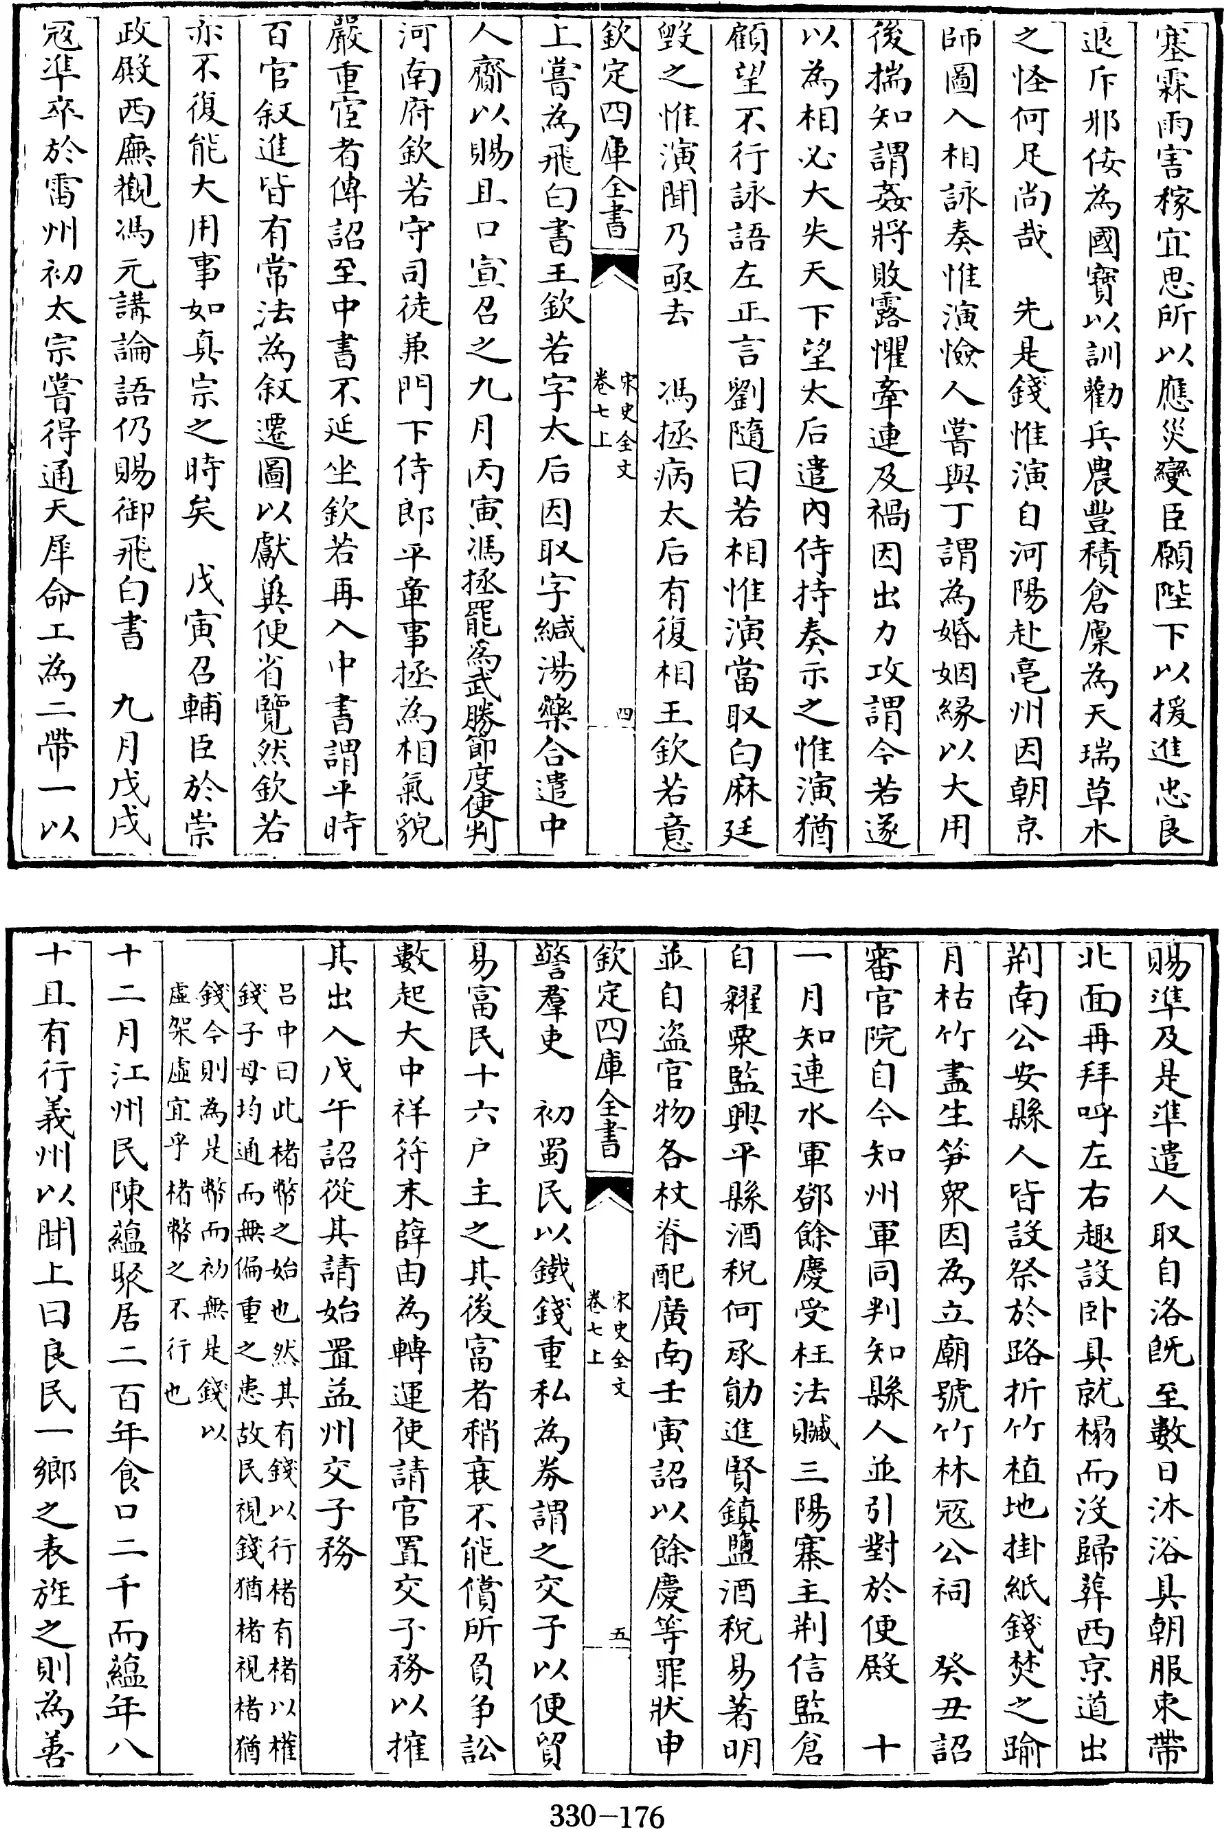 塞霖雨害稼宜思所以應災變臣願陛下以援進忠良
退斥邪佞為國寶以訓勸兵農豐積倉廩為天瑞草木
之怪何足尚哉　先是錢惟演自河陽赴亳州因朝京
師圖入相詠奏惟演憸人嘗與丁謂為婚姻緣以大用
後揣知謂姦將敗露懼牽連及禍因出力攻謂今若遂
以為相必大失天下望太后遣內侍持奏示之惟演猶
顧望不行詠語左正言劉隨曰若相惟演當取白麻廷
毀之惟演聞乃亟去　馮拯病太后有復相王欽若意
欽定四庫全書
宋史全文
卷七上
四
上嘗為飛白書王欽若字太后因取字緘湯藥合遣中
人齎以賜且口宣召之九月丙寅馮拯罷為武勝節度使判
河南府欽若守司徒兼門下侍郎平章事拯為相氣貌
嚴重宦者傳詔至中書不延坐欽若再入中書謂平時
百官叙進皆有常法為叙遷圖以獻冀便省覽然欽若
亦不復能大用事如真宗之時矣　戊寅召輔臣於崇
政殿西廡觀馮元講論語仍賜御飛白書　九月戊戌
冦準卒於雷州初太宗嘗得通天犀命工為二帶一以
賜準及是準遣人取自洛既至數日沐浴具朝服束帶
北面再拜呼左右趣設卧具就榻而沒歸葬西京道出
荆南公安縣人皆設祭於路折竹植地掛紙錢焚之踰
月枯竹盡生笋衆因為立廟號竹林冦公祠　癸丑詔
審官院自今知州軍同判知縣人並引對於便殿　十
一月知連水軍鄧餘慶受枉法贓三陽寨主荆信監倉
自糴粟監興平縣酒稅何承勛進賢鎮鹽酒稅易著明
並自盜官物各杖脊配廣南壬寅詔以餘慶等罪狀申
欽定四庫全書
宋史全文
卷七上
五
警羣吏　初蜀民以鐵錢重私為券謂之交子以便貿
易富民十六户主之其後富者稍衰不能償所負争訟
數起大中祥符末薛田為轉運使請官置交子務以搉
其出入戊午詔從其請始置益州交子務
吕中曰此楮幣之始也然其有錢以行楮有楮以權
錢子母均通而無偏重之患故民視錢猶楮視楮猶
錢今則為是幣而初無是錢以
虛架虛宜乎楮幣之不行也
十二月江州民陳藴聚居二百年食口二千而藴年八
十且有行義州以聞上曰良民一鄉之表旌之則為善
330-176